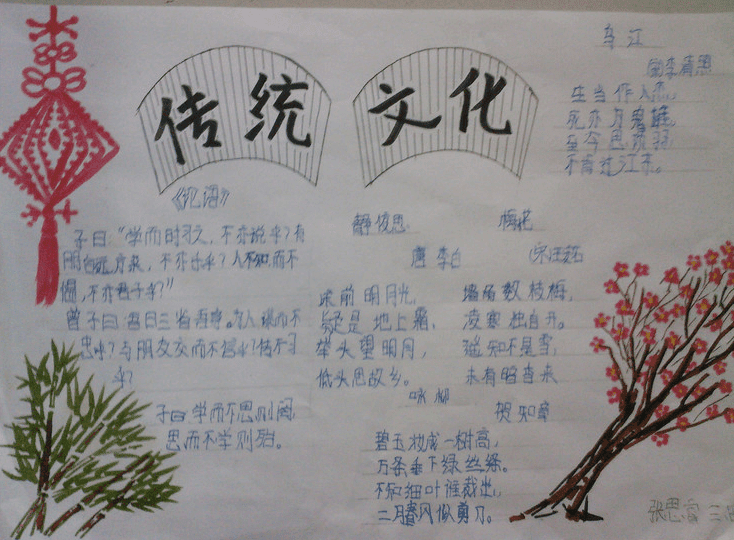 传统文化
乌江
宋李清照
生当作人杰,
死亦为鬼雄。
至今思项羽,
不肯过江东。
《论语》
子曰:“学而时习之,不亦说乎?有
朋自远方来,不亦乐乎?人不知而不
愠,不亦君子乎?”
曾子曰:吾日三省吾身。为人谋而不
忠乎?与朋友交而不信乎?传不习
乎?
子曰学而不思则罔,
思而不学则殆。
静夜思
唐 李白
床前明月光,
疑是地上霜,
举头望明月,
低头思故乡。
梅花
墙角数枝梅,
凌寒独自开。
遥知不是雪,
未有暗香来
咏柳
贺知章
碧玉妆成一树高,
万条垂下绿丝绦。
不知细叶谁裁出,
二月春风似剪刀。
张思